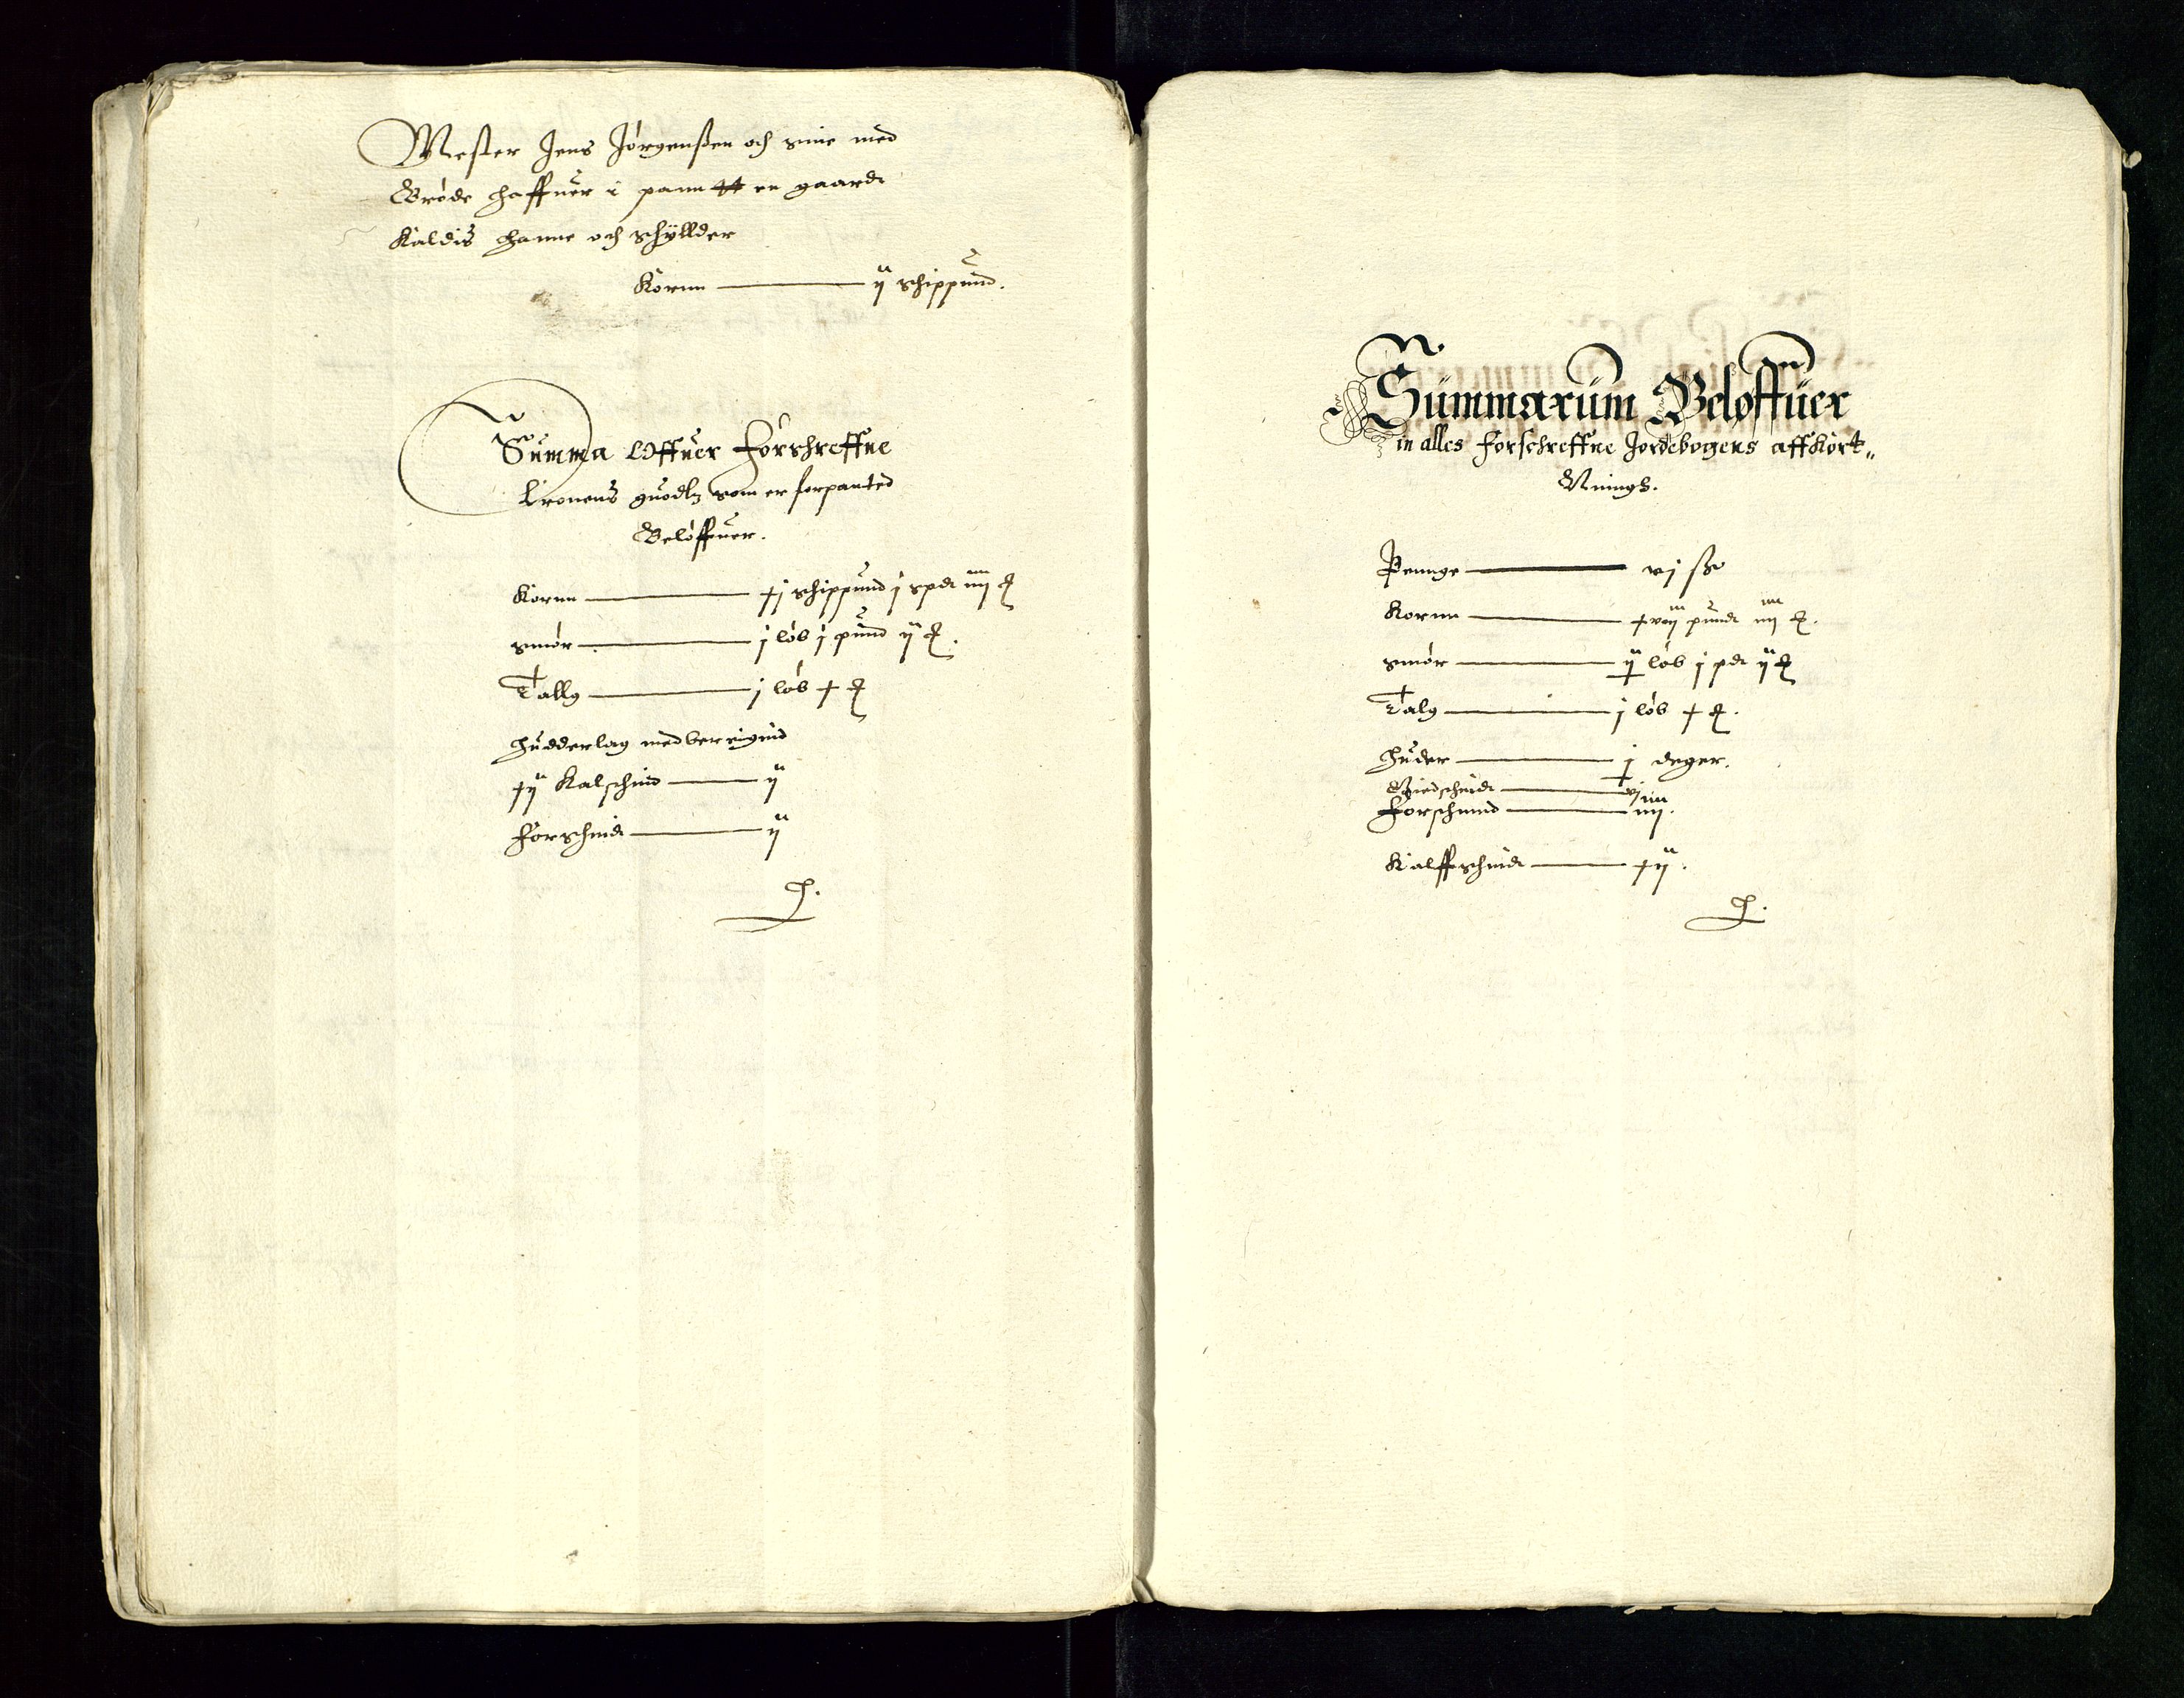 Mester Jens Jørgenßen och sine med
Brøde haffuer i pantt en gaard
Kaldis hanne och schyllder
Kornn — ij schippund.
Summa Offuer forschreffne
Kronens guodtz som er forpanted
Beløffuer.
Kornn — xj schippund j spd iiij ℔
smør — j løb j pund ij ℔.
Tallg — j løb x ℔
hudderlag med ber
xij Kalschind — ij
forschind — ij
Summarum Beløffuer
in alles forschreffne Jordebogens affkort„
Ninngs.
Pennge — vj ſß
Kornn — xviij pund iiij ℔.
smør — ij løb j pd ij ℔
Talg — j løb x ℔.
huder — j deger.
Giedschind — xvj
Forschinnd — iiij.
Kalffschind — xij.